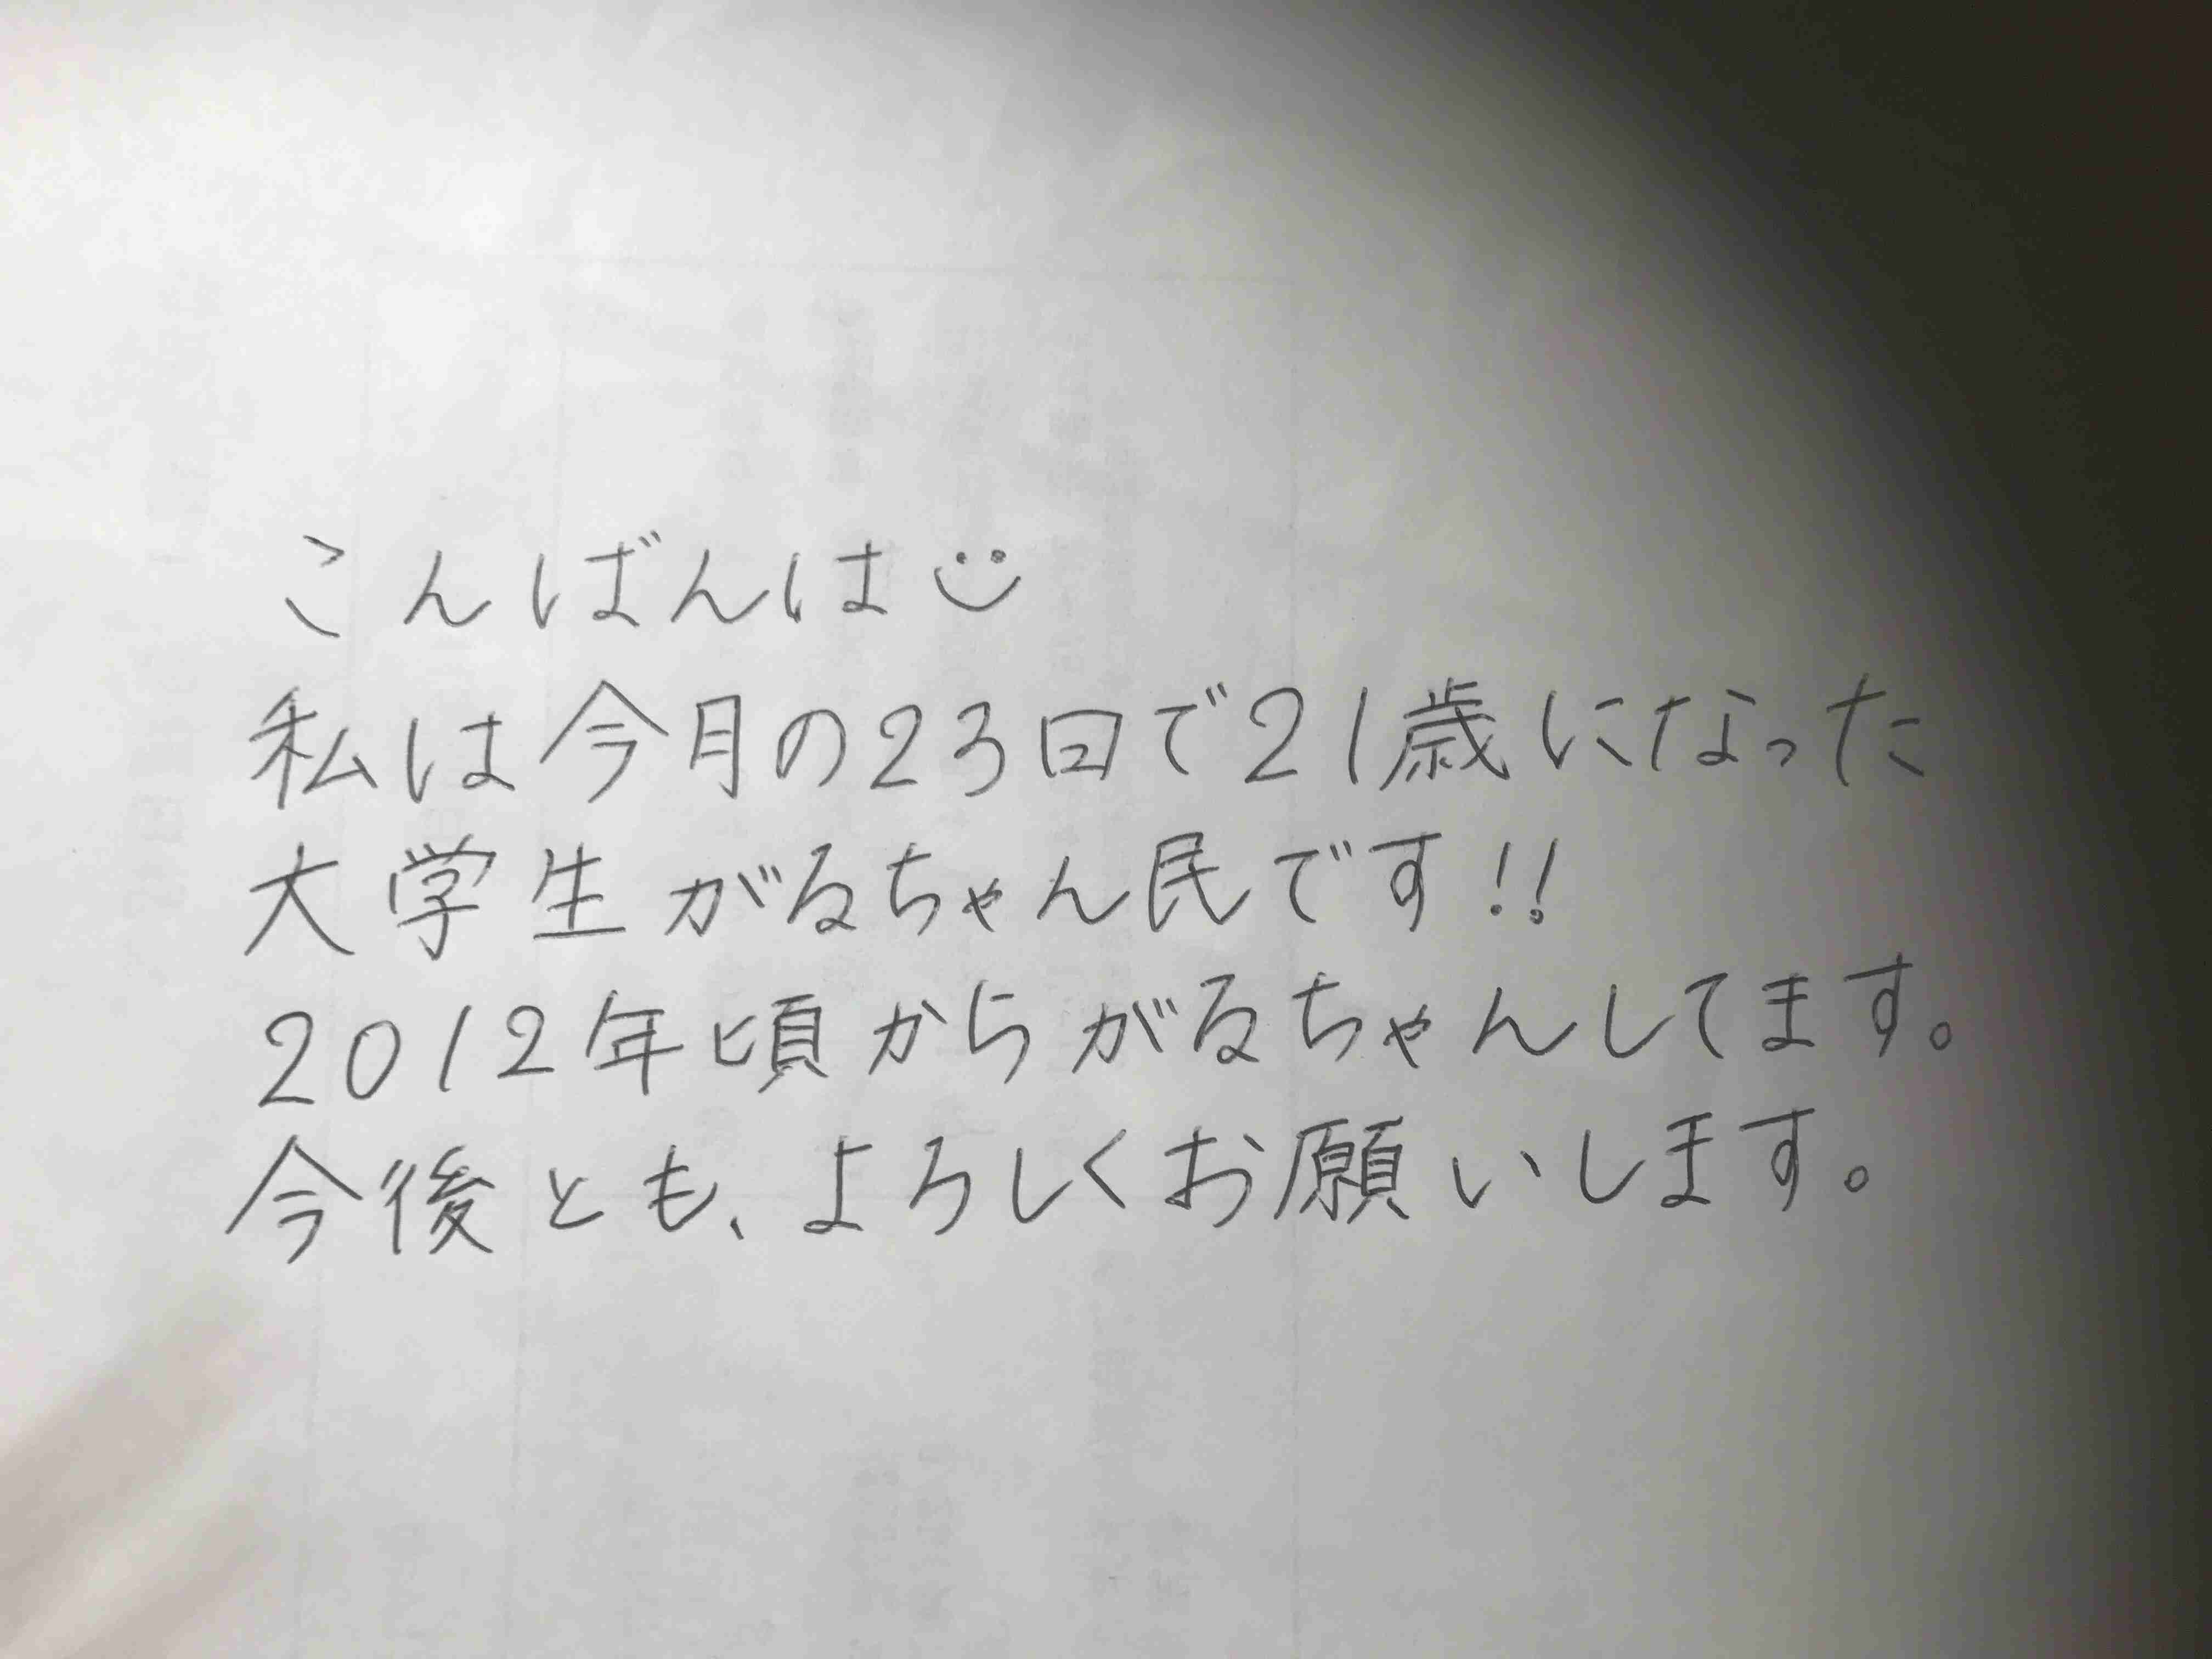 こんばんは
私は今月の23日で21歳になった
大学生がるちゃん民です!!
2012年頃からがるちゃんしてます。
今後とも、よろしくお願いします。